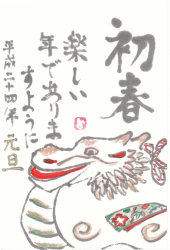 初春
楽しい
年でありま
すように
平成二十四年 元旦